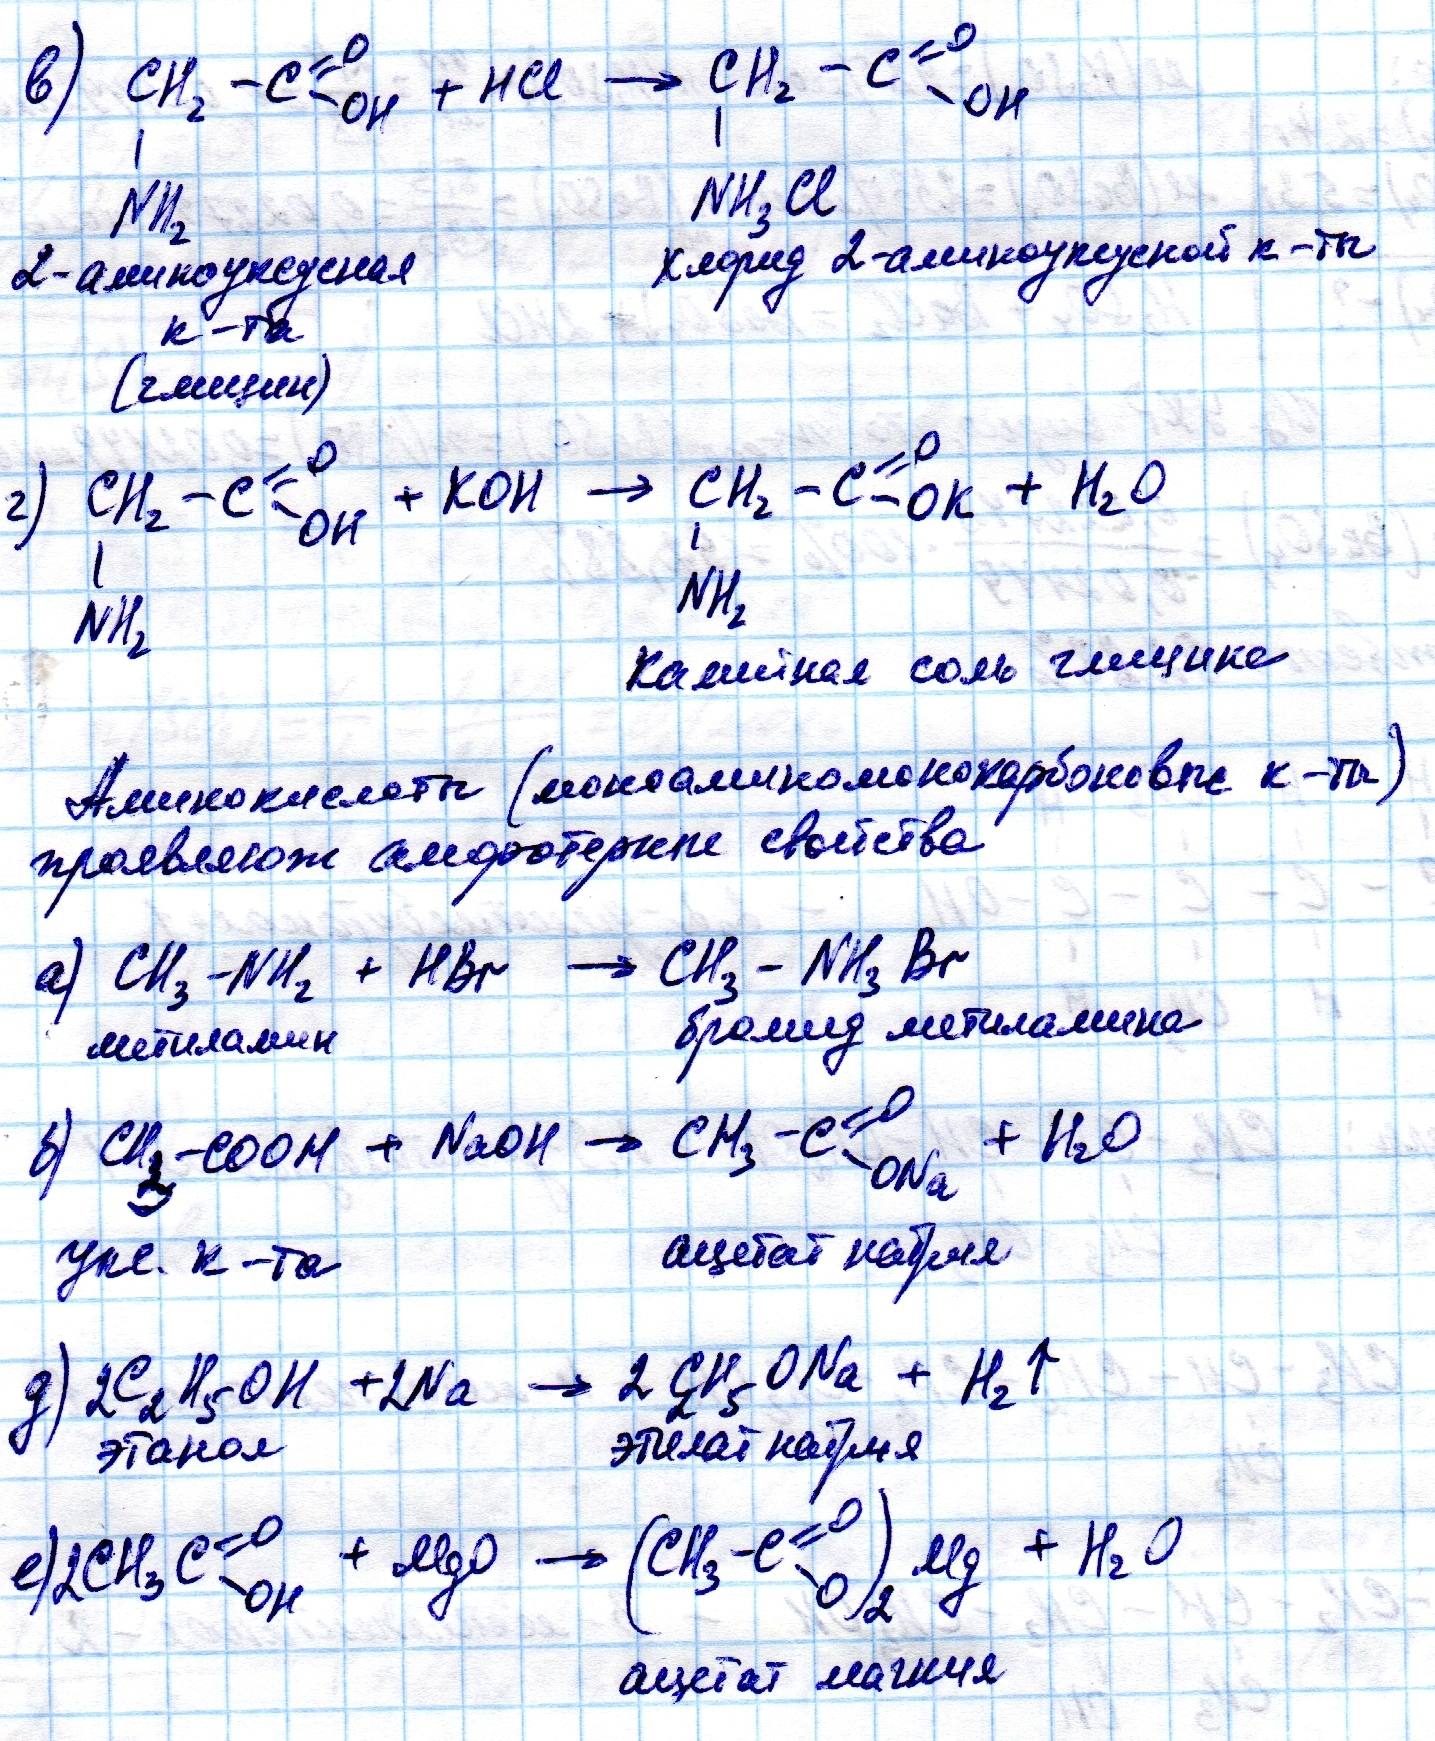 в) CH₂ - C =O -OH + HCl → CH₂ - C =O -OH
NH₂ NH₃Cl
2-аминоуксусная хлорид 2-аминоуксусной к-ты
к-та
(глицин)
г) CH₂ - C =O -OH + KOH → CH₂ - C =O -OK + H₂O
NH₂ NH₂
Калийная соль глицина
Аминокислоты (моноаминомонокарбоновые к-ты)
проявляют амфотерные свойства
а) CH₃ - NH₂ + HBr → CH₃ - NH₃Br
метиламин бромид метиламина
б) CH₃ - COOH + NaOH → CH₃ - C =O -ONa + H₂O
укс. к-та ацетат натрия
д) 2C₂H₅OH + 2Na → 2C₂H₅ONa + H₂↑
этанол этилат натрия
е) 2CH₃C =O -OH + MgO → (CH₃ - C =O -O)₂ Mg + H₂O
ацетат магния